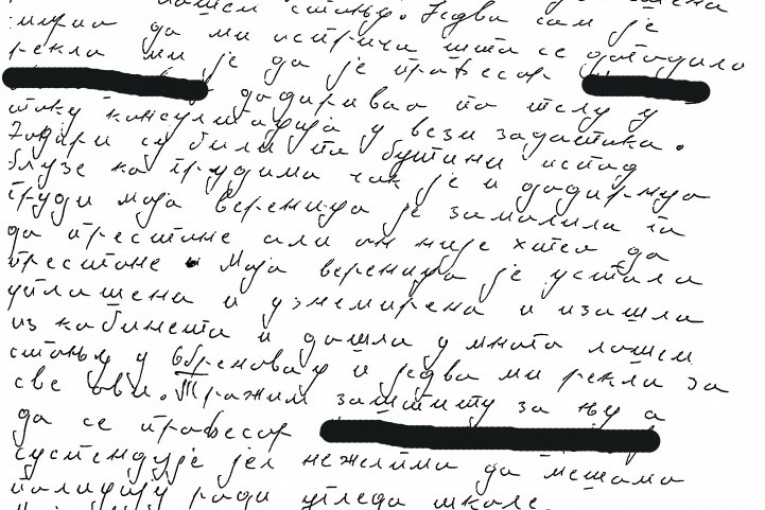 лошем стању. Једва сам је
да ми исприча шта се догодило
рекла ми је да је професор
додиривао по телу у
току консултација у вези задатка.
Додири су били по бутини испод
блузе на грудима чак је и додирнуо
груди моја вереница је замолила га
да престане али он није хтео да
престане. Моја вереница је устала
уплашена и узнемирена и изашла
из кабинета и дошла у много лошем
стању у Обреновац и једва ми рекла за
све ови. Тражим заштиту за њу а
да се професор
суспендује јел нежелимо да мешамо
полицију ради угледа школе.